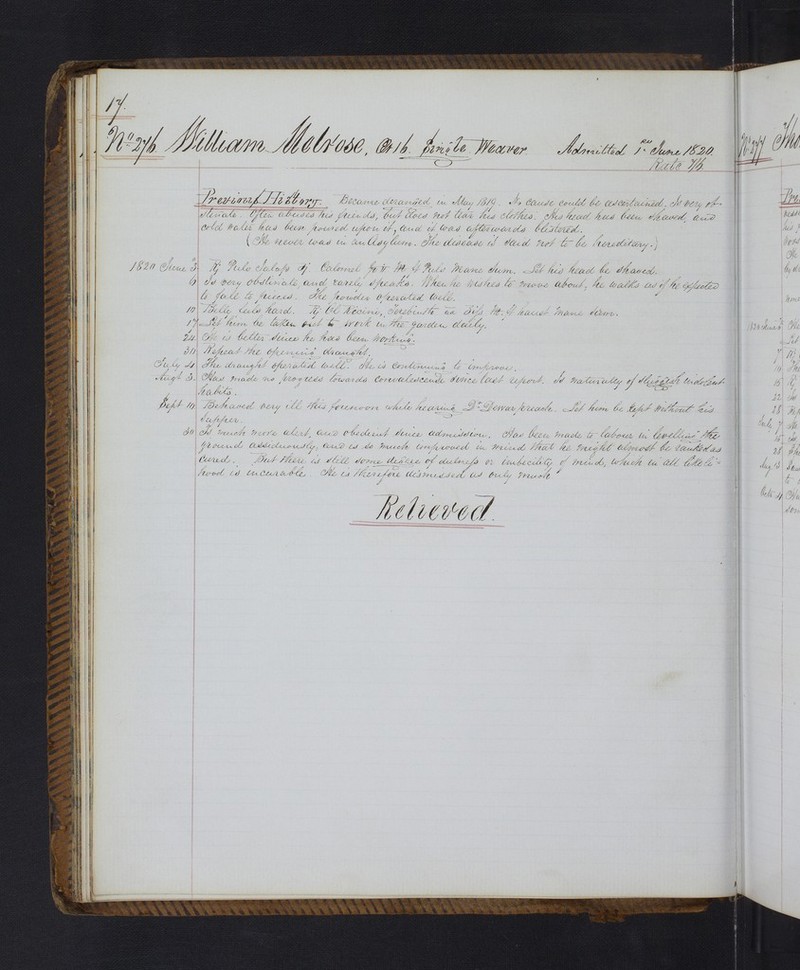 17.
No. 276 William Melrose, Æt 16. Single Weaver Admitted 1st June 1820.
Rate 7/6
Previous History. Became deranged in May 1819. No cause could be ascertained, Is very ob-
stinate. Often abuses his friends, but does not tear his clothes. His head has been shaved, and
cold water has been poured upon it, and it was afterwards blistered.
(He never was in an Asylum. The disease is said not to be hereditary.)
1820 June 3. Rx Pulv Jalap Calomel gr v M. ft Pulv mane sum. Let his head be shaved.
6 Is very obstinate, and rarely speaks. When he wishes to move about, he walks as if he expected
to fall to pieces. The powder operated well.
10 Belly feels hard. Rx Ol Ricini, Terebinth M. ft haust mane sum.
17 Let him be taken out to work in the garden daily.
24. He is better since he has been working.
30. Repeat the opening draught.
July 4. The draught operated well. He is continuing to improve.
Augt 3. Has made no progress towards convalescence since last report. Is naturally of sluggish indolent
habits.
Sept 10. Behaved very ill this forenoon while hearing Dr Dewar preach. Let him be kept without his
supper.
30 Is much more alert, and obedient since admission. Has been made to labour in levelling the
ground assiduously, and is so much improved in mind that he might almost be ranked as
cured. But there is still some degree of dulness or imbecility of mind, which in all likeli-
hood is incurable. He is therefore dismissed as only much
Relieved.
No. 277